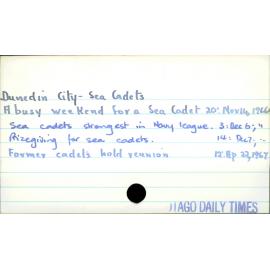 Dunedin City - Sea Cadets
A busy weekend for a Sea Cadet 20: Nov 14, 1966
Sea cadets strongest in Navy league. 3: Dec 6; "
Prizegiving for sea cadets. 14: Dec 7, -
Former cadets hold reunion 12: Ap 27, 1967
TAGO DAILY TIMES